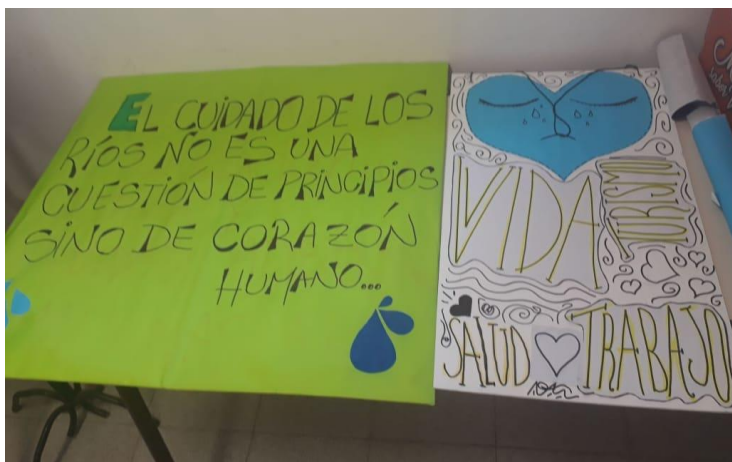 EL CUIDADO DE LOS
RÍOS NO ES UNA
CUESTIÓN DE PRINCIPIOS
SINO DE CORAZÓN
HUMANO...
VIDA
TURISMO
SALUD
TRABAJO